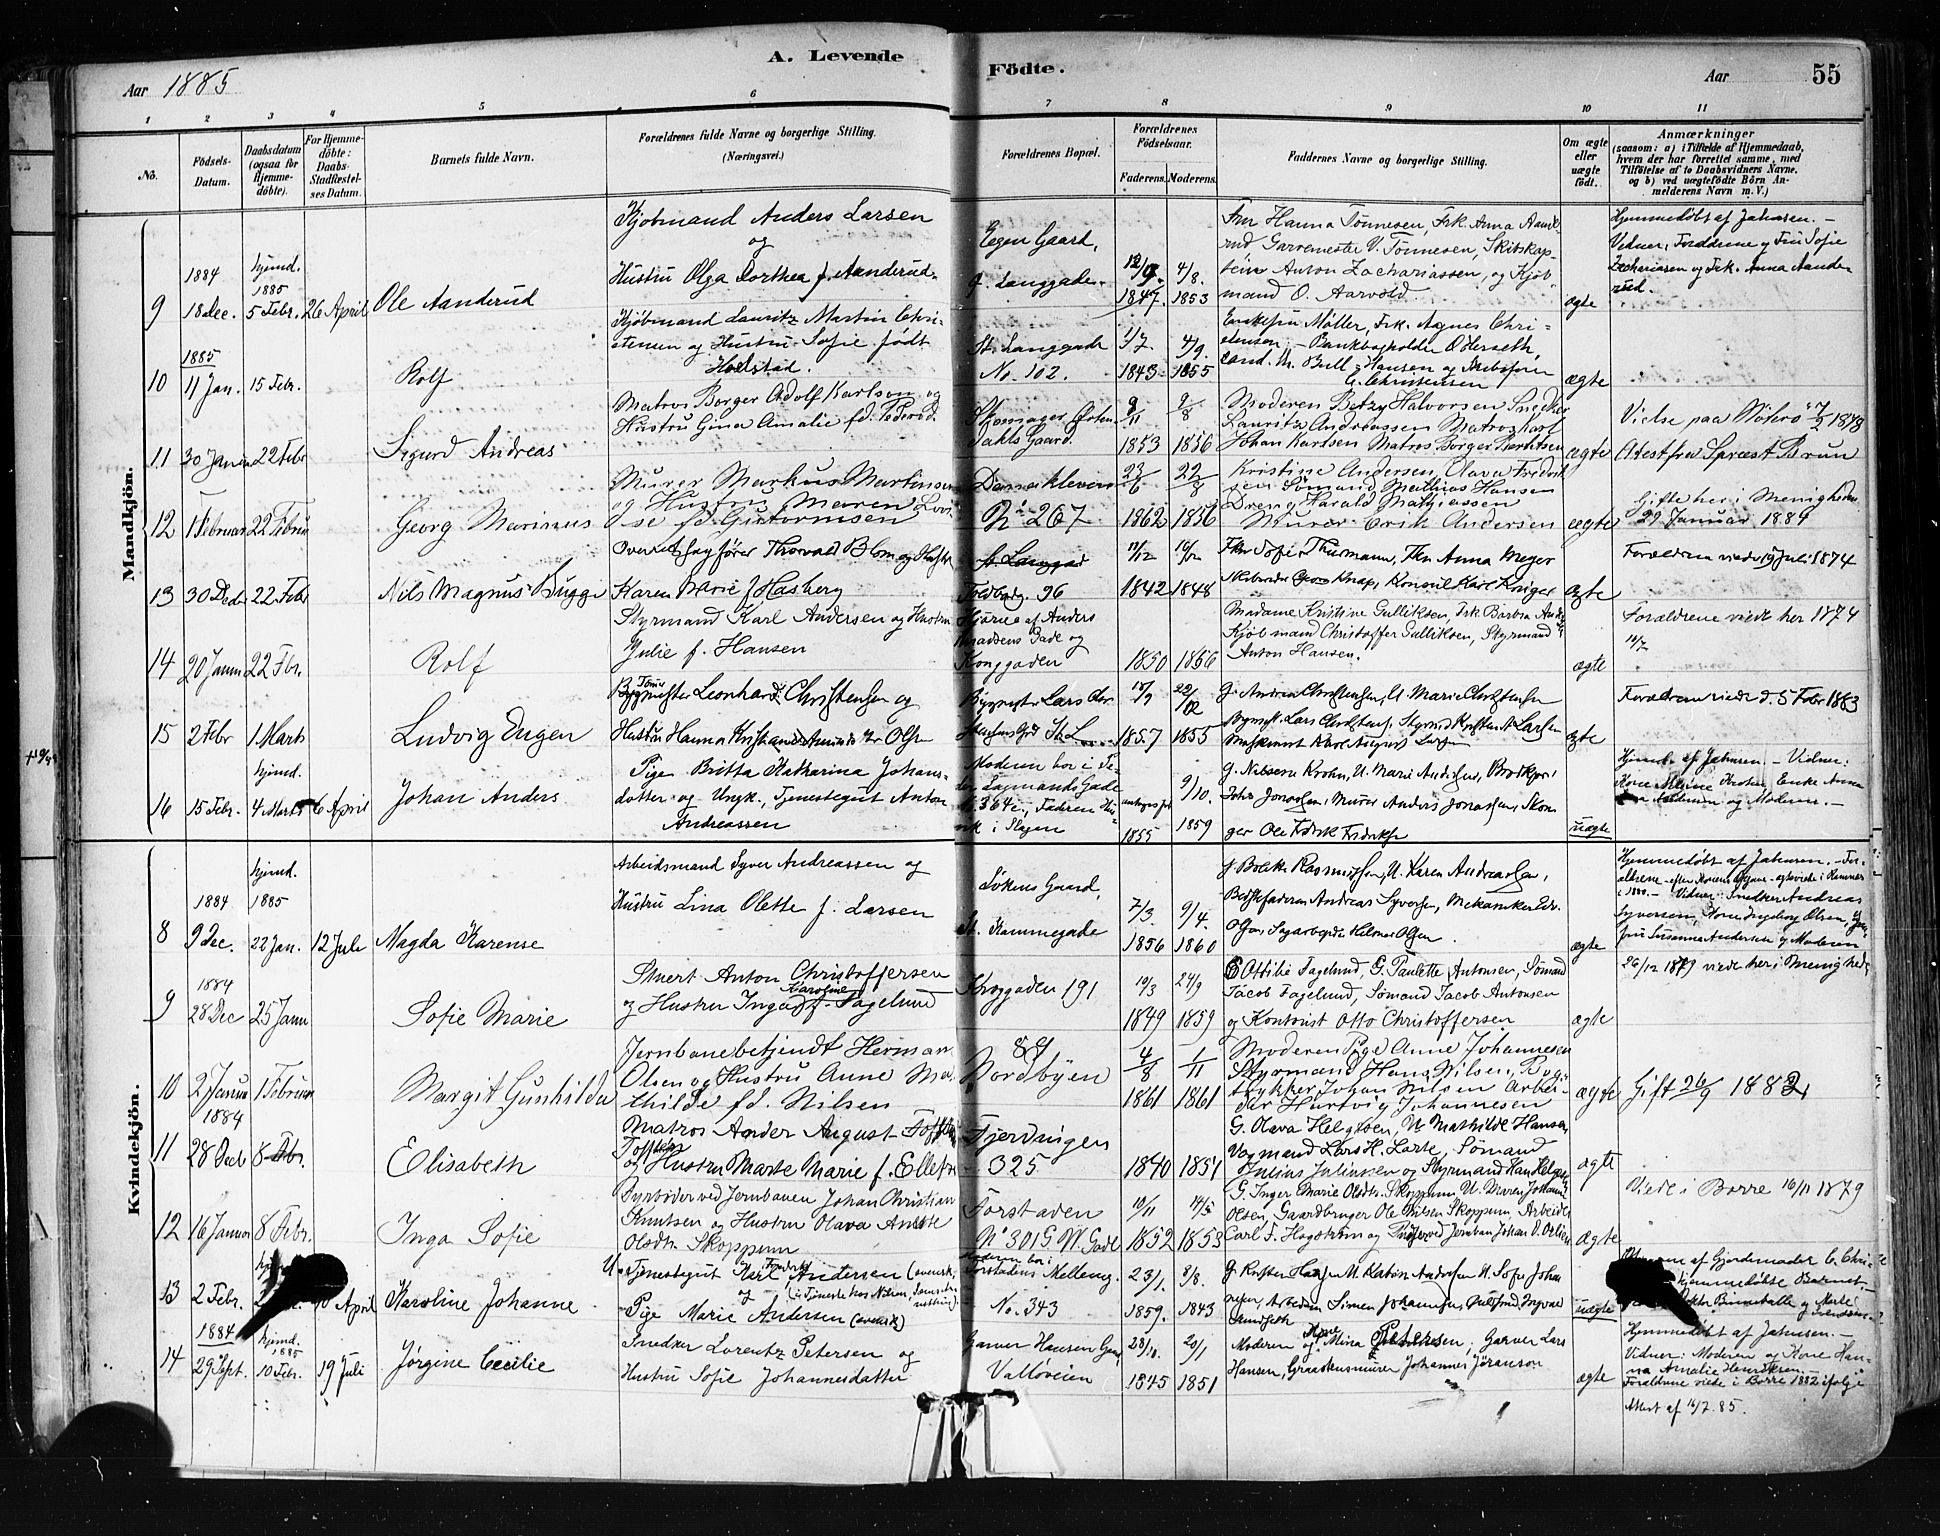 Aar 1885
A. Levende
Födte.
Aar
55
1 2 3 4 5 6 7 8 9 10 11
No.
Födsels-
Datum.
Daabsdatum
(ogsaa for
Hjemme-
döbte).
For Hjemme-
döbte:
Daabs-
Stadfæstel-
ses Datum.
Barnets fulde Navn.
Forældrenes fulde Navne og borgerlige Stilling.
(Næringsvei.)
Forældrenes Bopæl.
Forældrenes
Födselsaar.
Faderens. Moderens.
Faddernes Navne og borgerlige Stilling.
Om ægte
eller
uægte
födt.
Anmærkninger
(saasom: a) i Tilfælde af Hjemmedaab,
hvem der har forrettet samme, med
Tilföielse af to Daabsvidners Navne,
og b) ved uægtefödte Börn An-
melderens Navn m. V.)
Mandkjön.
9
1884
18 Dec.
hjemd.
1885
5 Febr.
26 April
Ole Aanderud
Kjøbmand Anders Larsen
og
Hustru Olga Dorthea f. Aanderud
Egen Gaard,
Langgade
1847. 4/8. 1853
Fru Hanna Tønnesen, Frk. Anna Aande
rud Garvemester V. Tønnesen, Skibskap-
teine Anton Zachariassen, og Kjøb-
mand O. Aarvold.
ægte
Hjemmedøbt af Jahnsen. –
Vidner, Forældrene og Fru Sofie
Zachariasen og Frk. Anna Aande-
rud.
10
1885
11 Jan.
15 Febr.
Rolf
Kjøbmand Lauritz Martin Chri-
stensen og Hustru Sofie født
Holstad.
St. Langgade
No. 102.
1/7 1843 4/9. 1855
Enkefru Møller, Frk. Agnes Chri-
stensen, Bankbogholder O Herseth,
Cand. M. Bull Hansen og Skibsfører
C. Christensen
ægte
11
30 Januar
22 Febr
Sigurd Andreas
Matros Borger Adolf Karlsen og
Hustru Gina Amalie fd. Pedersd.
Skomager Østen-
dahls Gaard.
9/11 1853 9/8 1856
Moderen Betzy Halvorsen Snedker
Lauritz Andreassen Matros Karl
Johan Karlsen Matros Borger Berntsen
ægte
Vielse paa Nøtterø 7/2 1878
Attest fra Sprest Brun
12
1 Februar
22 Februar
Georg Marinius
Murer Markus Martinsen
og Hustru Maren Lovi-
se fd. Guttormsen
Damekleven
No 267
23/6 1862 22/8 1856
Kristine Andersen, Olava Fredrik
sen Sømand Mathias Hansen
Dreng Harald Mathiesen
Murer Erik Andersen
ægte
Gifte her i Menigheden
29 Januar 1884
13
30 Decbr
22 Febr
Nils Magnus Bugge
Overretssagfører Thorvald Blom og Hustru
Karen Marie f Hasberg
St Langgad
Foldbodg. 96
11/12 1842 10/12 1848
Frk Sofie Thurmann, Frk Anna Meyer
Skibsreder Georg Knap, Konsul Karl Krüger
ægte
Forældrene viede 19 Juli 1874
14
20 Januar
22 Fbr.
Rolf
Styrmand Karl Andersen og Hustru
Julie f. Hansen
Hjørne af Anders
Madsens Gade og
Konggaden
1850 1856
Madame Kristine Gulliksen, Frk Barbra Ander
Kjøbmand Christoffer Gulliksen, Styrmand
Anton Hansen.
ægte
Forældrene viedt her 1874
11/7
15
2 Febr
1 Marts
Ludvig Eugen
Bygmester Leonhard Christensen og
Hustru Hanna Kristiane Amunda f. Olsen
Bygmester Lars Chr
stensens Grd St L
15/9 1857 22/12 1855
G. Andrea Christensen, U. Marie Christensen
Bygmst. Lars Christensen, Styrmd Kristian A Larsen
Maskinist Karl August Larsen
ægte
Forældrene viede d. 5 Febr 1883
16
15 Febr.
hjemd.
4 Marts
6 April
Johan Anders
Pige Britta Katharina Johans-
datter og Ungk., Tjenestegut Anton
Andreassen
Moderen bor i Pe-
der Lagmands Gade
364c, Faderen Hu-
vik i Slagen
1855 9/10. 1859
G. Nilsine Krohn, U. Marie Andersen, Brolkjører
Johs Jonassen, Murer Anders Jonassen, Skon-
ger Ole Fredrik Fredriksen
uægte
Hjemd. af Jahnsen. – Vidner:
Kone Maline Knutsen Enke Anna
Andersen og Moderen. –
Kvindekjön.
8
1884
9 Dec.
hjemd.
1885
22 Jan.
12 Juli
Magda Karense
Arbeidsmand Syver Andreassen og
Hustru Lina Olette f. Larsen
Søkens Gaard,
St. Kammegade
7/3. 1856 9/4. 1860
G Bolette Rasmussen, U. Karen Andreassen,
Bedstefaderen Andreas Syversen, Mekaniker Edv.
Olsen Sagarbeider Hilmer Olsen.
ægte
Hjemmedøbt af Jahnsen. – For-
ældrene efter Konens Opgave ægteviede i Ramnes
i 1880. – Vidner: Snedker Andreas
Syversen, Kone Ingeborg Olsen, Jom-
fru Susanna Andersen og Moderen
9
1884
28 Dec
25 Janu
Sofie Marie
Stuert Anton Christoffersen
og Hustru Inga Karoline f. Fagelund
Kroggaden 191
10/3 1849 24/9 1859
Ottilie Fagelund, G. Paulette Antonsen, Sømand
Jacob Fagelund, Sømand Jacob Antonsen
og Kontorist Otto Christoffersen
ægte
26/12 1879 viede her i Menighed
10
2 Januar
1 Februar
Margit Gunhilda
Jernbanebetjendt Herman
Olsen og Hustru Anne Ma-
thilde fd. Nilsen
89
Nordbyen
4/8 1861 1/11 1861
Moderen Pige Anne Johannesen
Styrmand Hans Nilsen, Bog-
trykker Johan Nilsen Arbei-
der Hartvig Johannesen
ægte
Gift 26/9 1882
11
1884
28 Decb
8 Fbr.
Elisabeth
Matros Ander August
Toffsten
og Hustru Marte Marie f. Ellefsen
Fjerdingen
325
1840 1851
G. Olava Helgesen, U Mathilde Hansen
Vognmand Lars H. Larke, Sømand
Julius Juliussen og Styrmand Hans Helgesen
ægte
12
16 Januar
8 Febr.
Inga Sofie
Fyrbøder ved Jernbanen Johan Christian
Knutsen og Hustru Olava Anette
Olsdtr. Skoppum
Forstaden
No 301 G. W. Gade
10/11 1852 14/5 1853
G. Inger Marie Olsdtr. Skoppum U. Maren Johanne
Olsen, Gaardbruger Ole Nilsen Skoppum, Arbeider
Carl F. Hogstrøm og Pudser ved Jernban Johan O. Olsen
ægte
Viede i Borre 16/11 1879
13
2 Febr.
10 April
Karoline Johanne
U. Tjenestegut Karl Fredrik Andersen (svensk,
og (i Tjeneste hos Nilsen,
Pige Marie Andersen (svensk)
Moderen bor:
Forstadens Mellemg.
No. 343
23/1. 1859. 8/8. 1843
G. Kirsten Hansen U Katrine Andersen U. Sofie Johan
nesen, Arbeider Simen Johannesen, Gulsmd. Ingval
Sundseth
uægte
af Gjordemoder C. Chri-
hjemmedøbte Barnet
14
1884
29 Sept.
hjemd.
1885
10 Febr.
19 Juli
Jørgine Cecilie
Snedker Lorentz Petersen og
Hustru Sofie Johannesdatter
Garver Hansens Gaard
Valløveien
28/10. 1845 20/1 1851
Moderen og Kone Mina Petersen, Garver Lars
Hansen, Graastensmurer Johannes Jøranson
ægte
Hjemmedøbt af Jahnsen. –
Vidner: Moderen og Kone Han-
na Amalie Henriksen –
Forældrene viede i Borre 1882 ifølge
Attest af 16/7. 85.